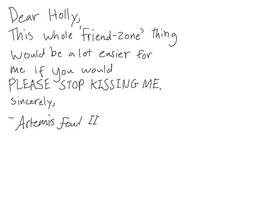 Dear Holly,
This whole 'friend-zone' thing
would be a lot easier for
me if you would
PLEASE STOP KISSING ME.
Sincerely,
~Artemis Fowl II